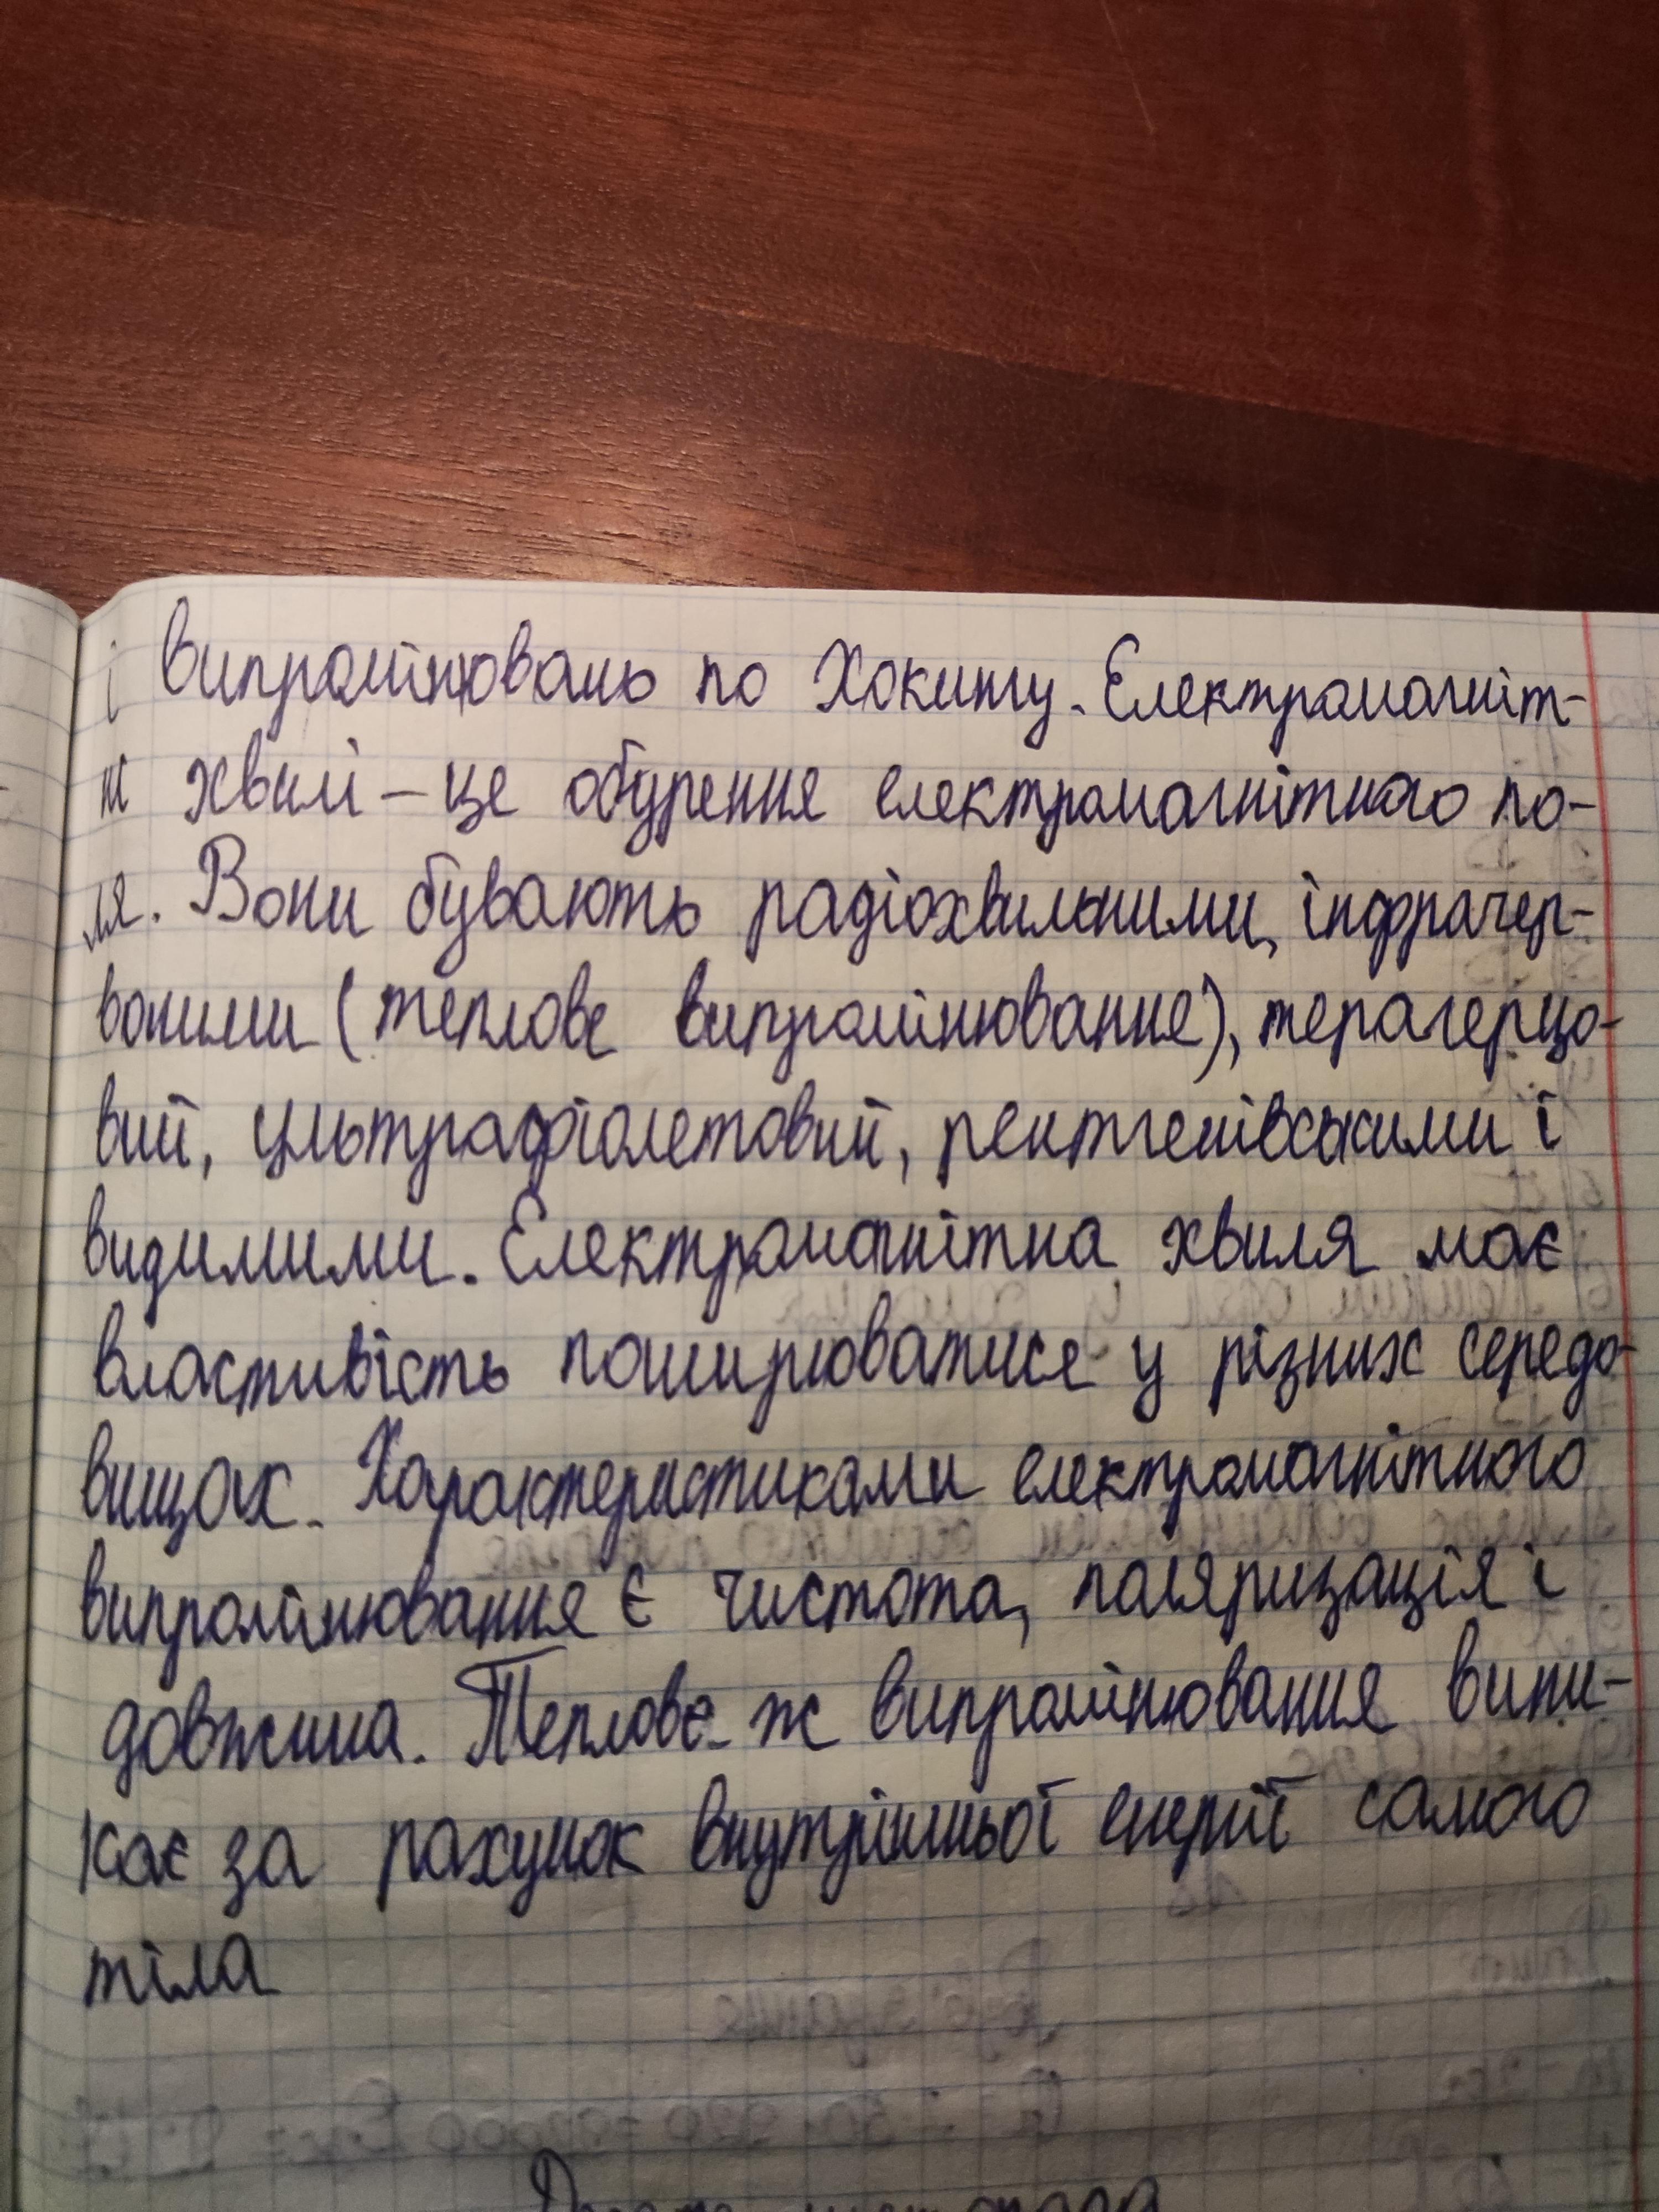 і випромінювань по Хокингу. Електромагніт-
ні хвилі – це обурення електромагнітного по-
ля. Вони бувають радіохвильними, інфрачер-
воними (теплове випромінювання), терагерцо-
вий, ультрафіолетовий, рентгенівськими і
видимими. Електромагнітна хвиля має
властивість поширюватися у різних середо-
вищах. Характеристиками електромагнітного
випромінювання є чистота, поляризація і
довжина. Теплове ж випромінювання вини-
кає за рахунок внутрішньої енергії самого
тіла